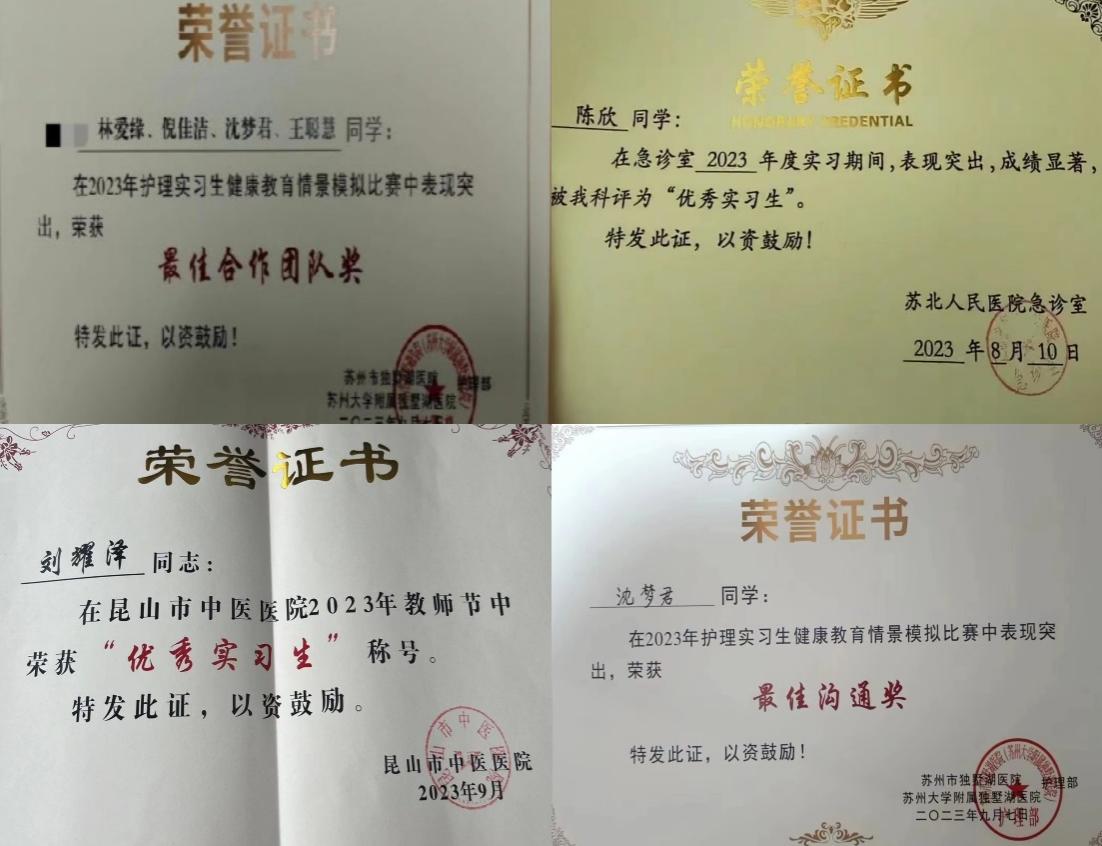 荣誉证书
林爱缘、倪佳洁、沈梦君、王聪慧 同学：
在2023年护理实习生健康教育情景模拟比赛中表现突
出，荣获
最佳合作团队奖
特发此证，以资鼓励！
苏州市独墅湖医院 护理部
苏州大学附属独墅湖医院
荣誉证书
HONORARY CREDENTIAL
陈欣 同学：
在急诊室 2023 年度实习期间，表现突出，成绩显著，
被我科评为“优秀实习生”。
特发此证，以资鼓励！
苏北人民医院急诊室
2023 年 8 月 10 日
荣誉证书
刘耀泽 同志：
在昆山市中医医院2023年教师节中
荣获“优秀实习生”称号。
特发此证，以资鼓励。
昆山市中医医院
2023年9月
荣誉证书
沈梦君 同学：
在2023年护理实习生健康教育情景模拟比赛中表现突
出，荣获
最佳沟通奖
特发此证，以资鼓励！
苏州市独墅湖医院 护理部
苏州大学附属独墅湖医院
二〇二三年九月七日
护理部